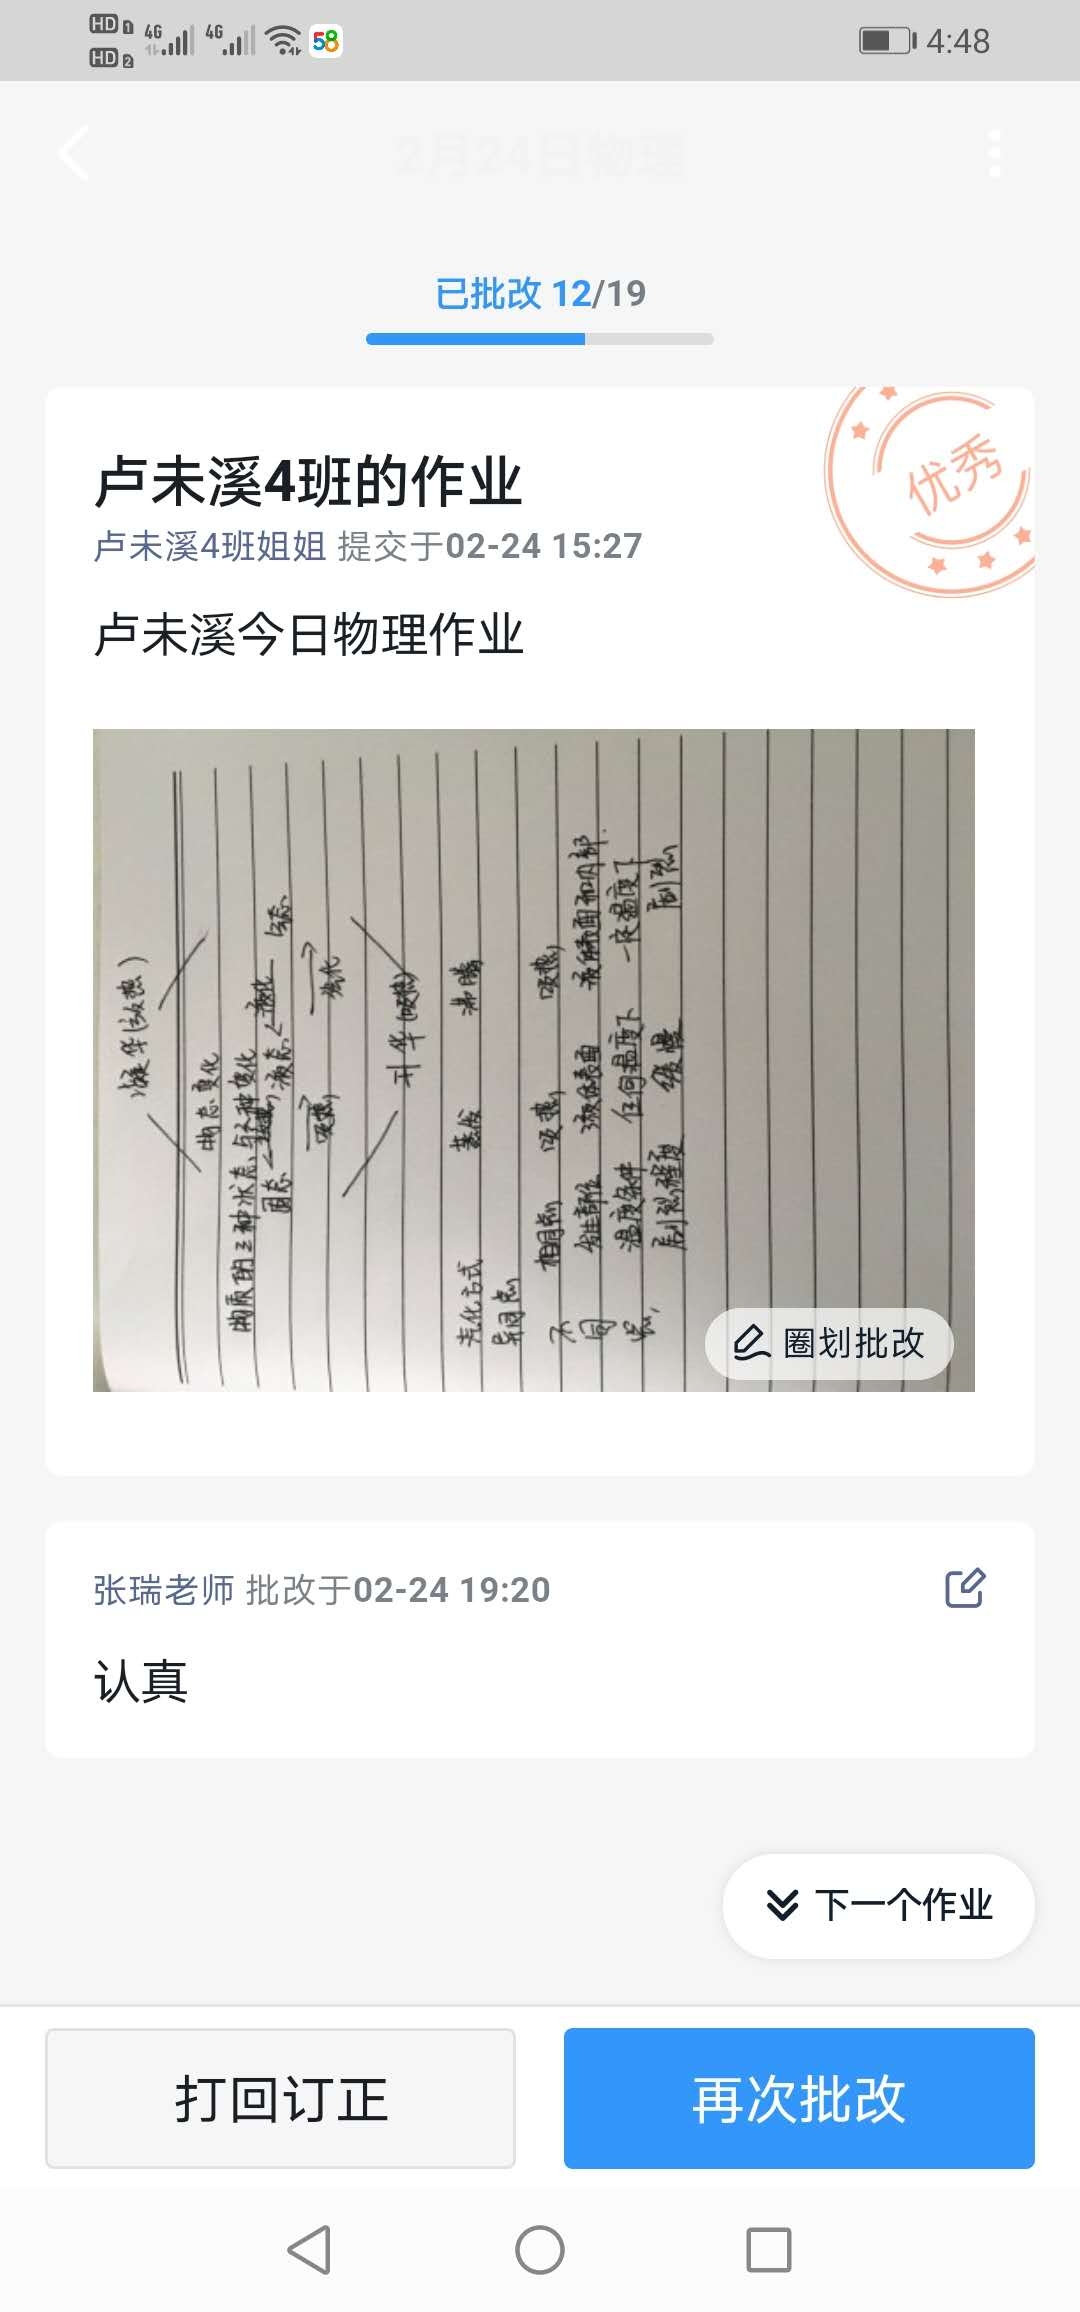 HD 1 4G 4G 58 4:48
HD 2
2月24日物理
已批改 12/19
优秀
卢未溪4班的作业
卢未溪4班姐姐 提交于02-24 15:27
卢未溪今日物理作业
凝华(放热)
物态变化
物质的三种状态与6种变化
固态 液态 液化 气态
吸热 汽化
升华(吸热)
汽化方式 蒸发 沸腾
异同点
相同点 吸热 吸热
不 发生部位 液体表面 液体表面和内部.
同 温度条件 任何温度下 一定温度下
点 剧烈程度 缓慢 剧烈
圈划批改
张瑞老师 批改于02-24 19:20
认真
下一个作业
打回订正
再次批改